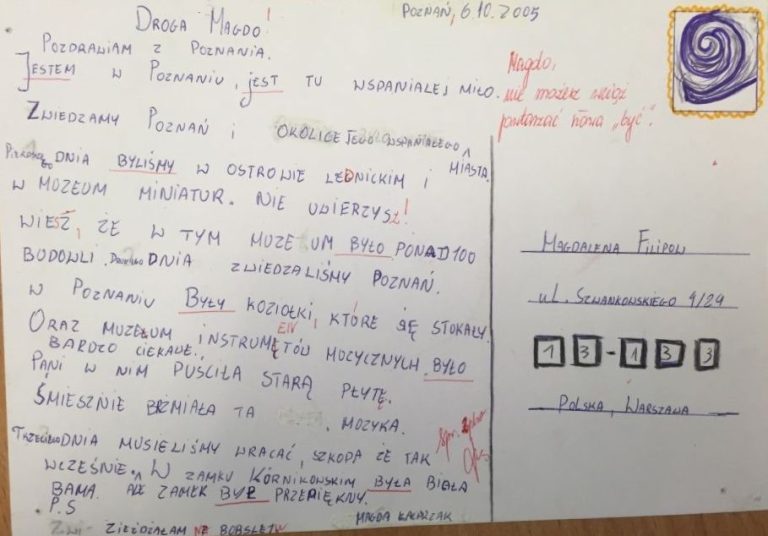 Droga Magdo!
Poznań, 6.10.2005
Pozdrawiam z Poznania.
Jestem w Poznaniu, jest tu wspaniałej miło.
Zwiedzamy Poznań i okolice jego wspaniałego miasta.
dnia byliśmy w Ostrowie Lednickim i
w Mozeum Miniatur. Nie uwierzysz!
Wiesz, że w tym muzeum było ponad 100
budowli. dnia zwiedzaliśmy Poznań.
w Poznaniu Były koziołki, które się stokały.
Oraz muzeum instrumentów mozycznych było
bardzo ciekawe.
Pani w nim puściła starą płytę.
Śmiesznie brzmiała ta mozyka.
Trzeciego dnia musieliśmy wracać, szkoda że tak
wcześnie. W zamku Kórnikowskim była Biała
Bama. Ale zamek był przepiękny.
P.S
Zieżdżałam na bobsleju
Magda
Magdo,
nie możesz wciąż
powtarzać słowa „być”.
Magdalena Filipow
ul. Szwankowskiego 4/29
13-133
Polska, Warszawa